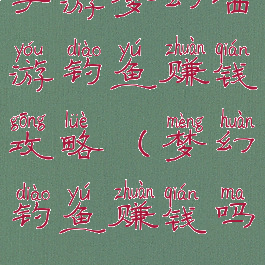 yóu diào yú zhuàn qián
游钓鱼赚钱
gōng lüè mèng huàn
攻略（梦幻
diào yú zhuàn qián ma
钓鱼赚钱吗